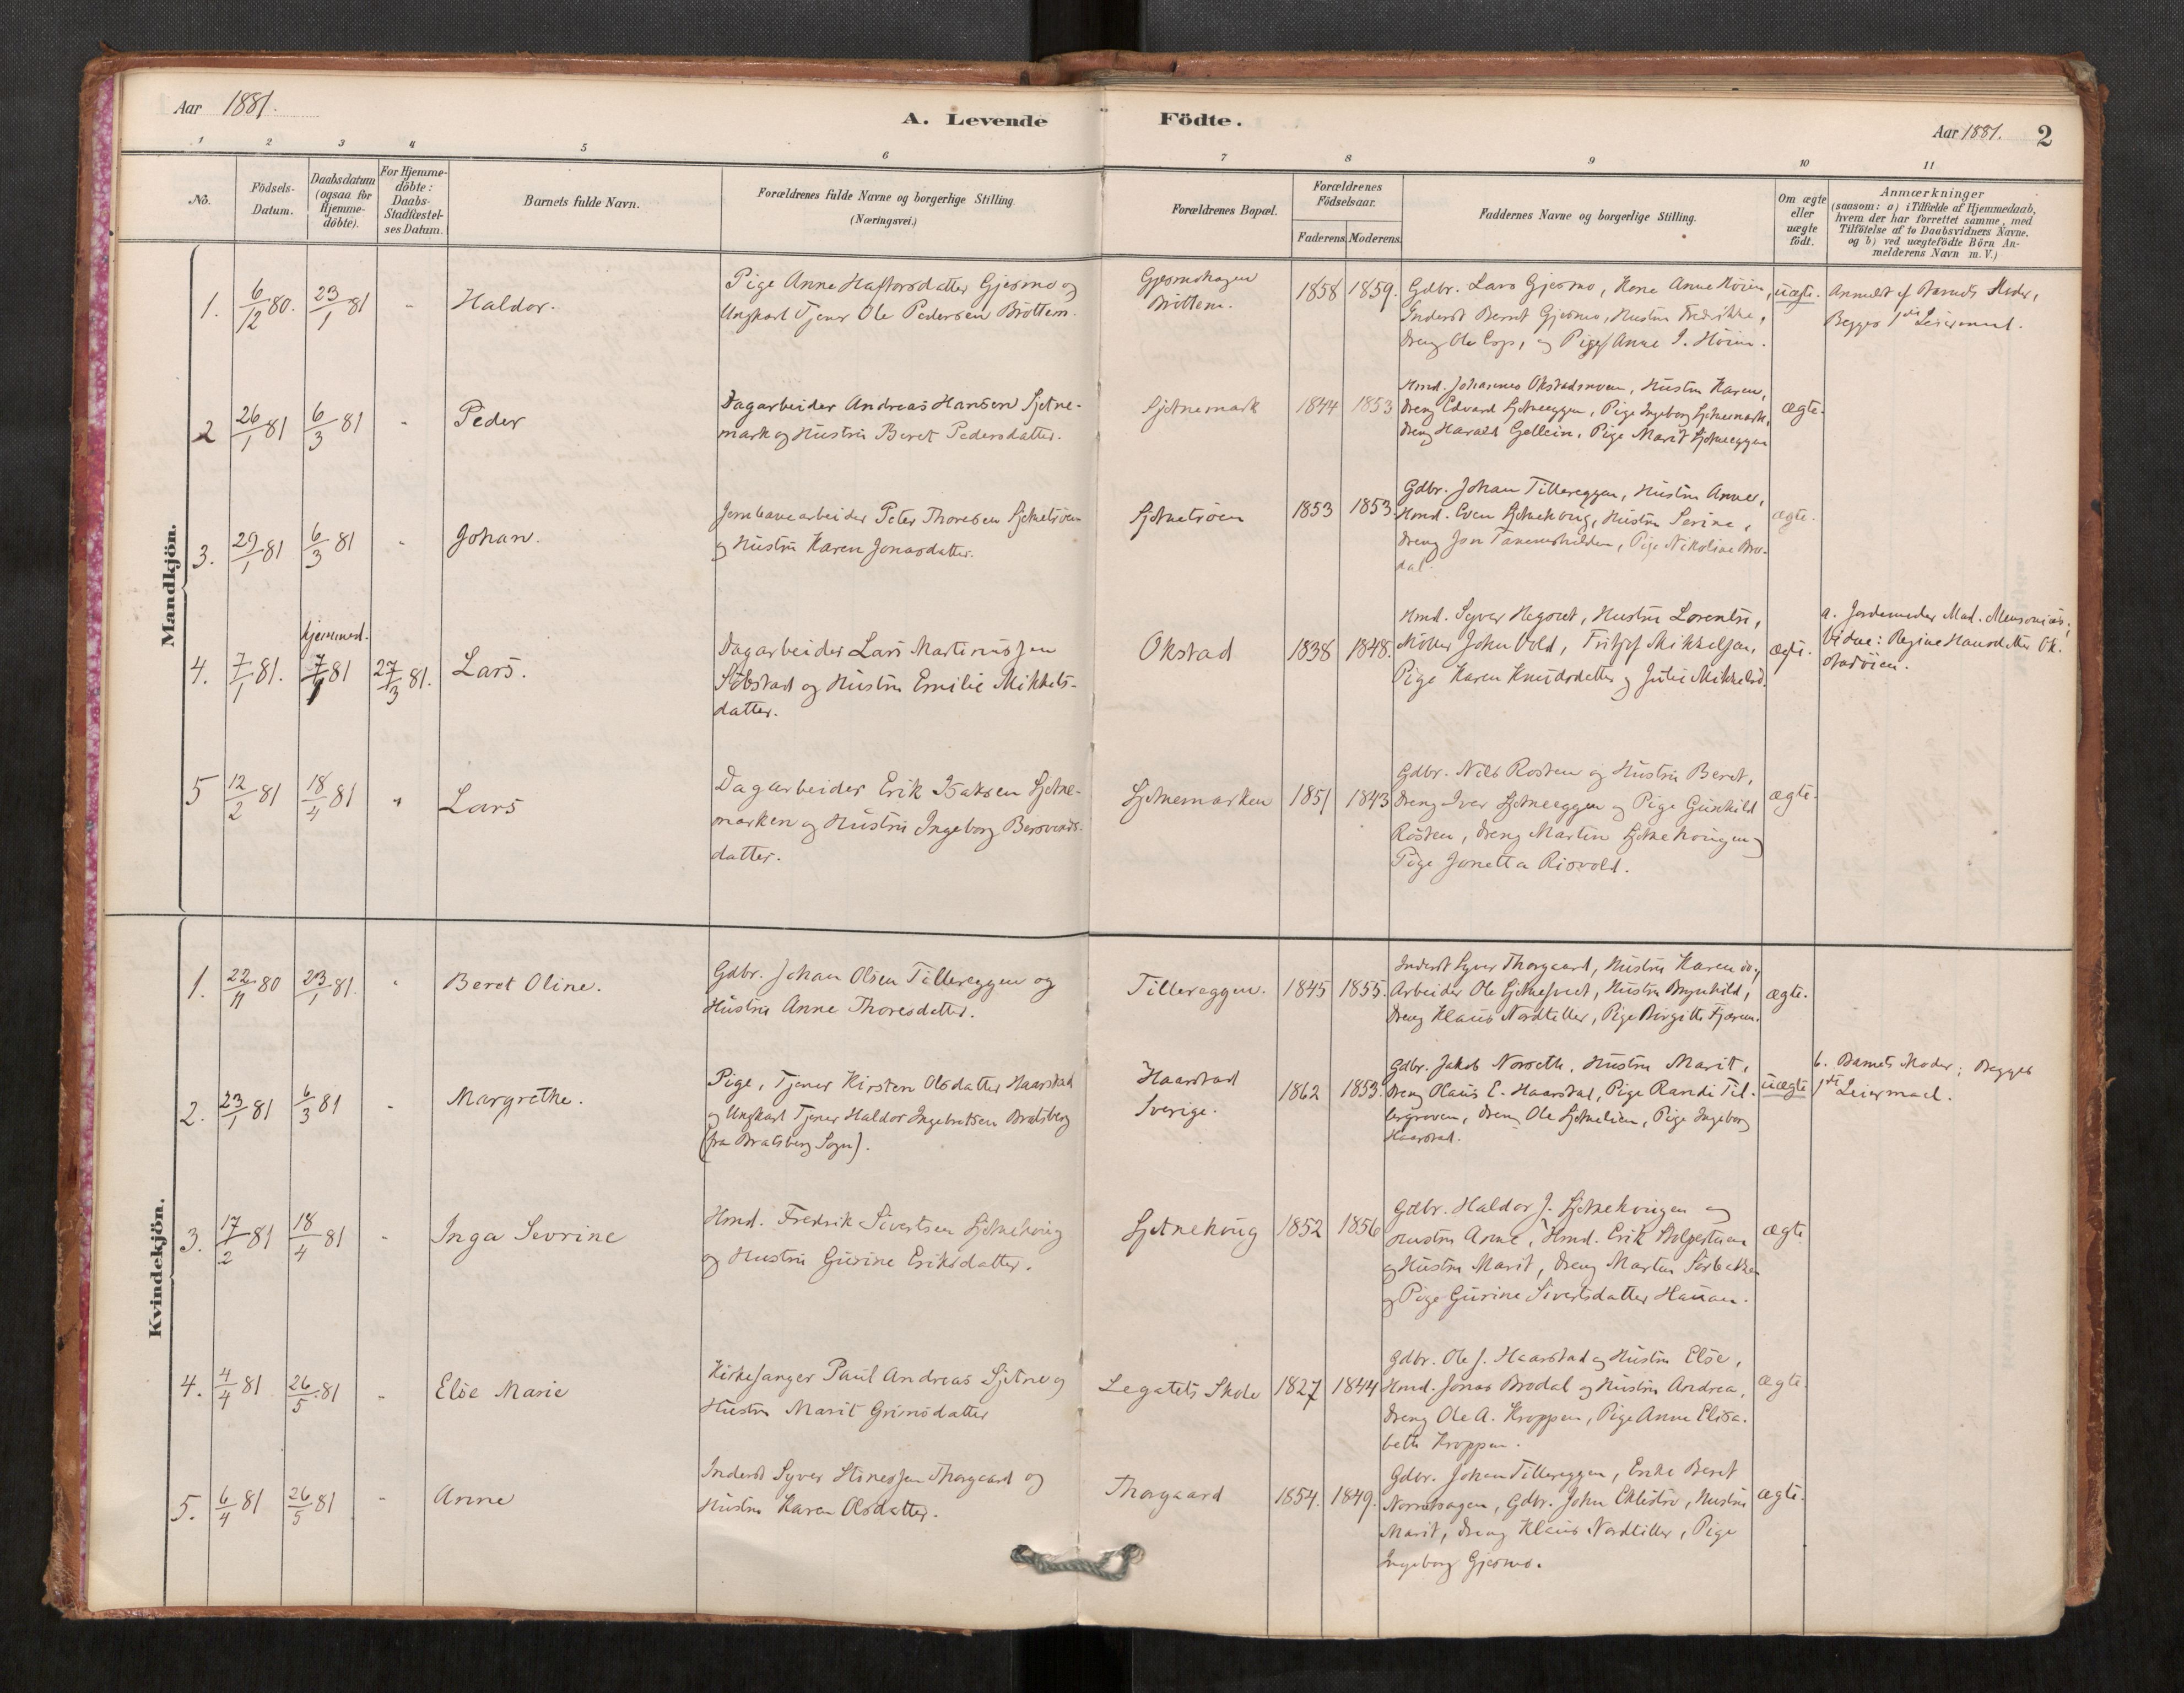 Aar 1881.
A. Levende Födte.
Aar 1881. 2
1 2 3 4 5 6 7 8 9 10 11
No.
Födsels-
Datum.
Daabsdatum
(ogsaa for
Hjemme-
döbte).
For Hjemme-
döbte:
Daabs-
Stadfæstel-
ses Datum.
Barnets fulde Navn.
Forældrenes fulde Navne og borgerlige Stilling.
(Næringsvei.)
Forældrenes Bopæl.
Forældrenes
Födselsaar.
Faderens. Moderens.
Faddernes Navne og borgerlige Stilling.
Om ægte
eller
uægte
födt.
Anmærkninger
(saasom: a) i Tilfælde af Hjemmedaab,
hvem der har forrettet samme, med
Tilföielse af to Daabsvidners Navne,
og b) ved uægtefödte Börn An-
melderens Navn m. V.)
Mandkjön.
1. 6/12 80. 23/1 81 - Haldor.
Pige Anne Haftorsdatter Gjesmo og
Ungkarl Tjener Ole Pedersen Bröttem.
Gjesmohagen
Bröttem.
1858 1859.
Gdbr. Lars Gjesmo, Kone Anne Höiem,
Inderst Bernt Gjesmo, Hustru Fredrikke,
Dreng Ole Esp, og Pige Anne I. Höiem.
uægte.
Anmeldt af Barnets Moder,
Begges 1ste Leiermaal.
2 26/1 81 6/3 81 - Peder
Dagarbeider Andreas Hansen Sjetne-
mark og Hustru Beret Pedersdatter.
Sjetnemark
1844 1853
Hmd. Johannes Okstadmoen, Hustru Karen,
Dreng Edvard Sjetneeggen, Pige Ingeborg Sjetnemark,
Dreng Harald Gellein, Pige Marit Sjetneeggen
ægte.
3. 29/1 81 6/3 81 - Johan.
Jernbanearbeider Peter Thoresen Sjetnetröen
og Hustru Karen Jonasdatter.
Sjetnetröen
1853 1853.
Gdbr. Johan Tillereggen, Hustru Anne,
Hmd. Even Sjetnehoug, Hustru Serine,
Dreng Jon Tanemshilden, Pige Nikoline Bro-
dal.
ægte.
4. 7/1 81. hjemmed. 7/1 81 27/3 81. Lars.
Dagarbeider Lars Martinussen
Söbstad og Hustru Emilie Mikkels-
datter.
Okstad
1838 1848.
Hmd. Syver Hegset, Hustru Lorentse,
Möller John Vold, Fritjof Mikkelsen,
Pige Karen Knudsdatter og Julie Mikkelsd.
ægte.
a. Jordemoder Mad.
Vidne: Regine Hansdatter Ok-
stadöien.
5 12/2 81 18/4 81 " Lars
Dagarbeider Erik Isaksen Sjetne-
marken og Hustru Ingeborg Bersvends-
datter.
Sjetnemarken
1851 1843
Gdbr. Nils Rosten og Hustru Beret,
Dreng Iver Sjetneeggen og Pige Gunhild
Rosten, Dreng Martin Sjetnehougen og
Pige Jonetta Risvold.
ægte.
Kvindekjön.
1. 22/11 80 23/1 81. " Beret Oline.
Gdbr. Johan Olsen Tillereggen og
Hustru Anne Thoresdatter.
Tillereggen.
1845 1855.
Inderst Syver Thorgaard, Hustru Karen do.,
Arbeider Ole Sjetnesveet, Hustru Brynhild,
Dreng Klaus Nordtiller, Pige Birgitte Fjærem.
ægte.
2. 23/1 81 6/3 81 - Margrethe.
Pige, Tjener Kirsten Olsdatter Haarstad
og Ungkarl Tjener Haldor Ingebretsen Bratsberg
(fra Bratsberg Sogn).
Haarstad
Sverige.
1862 1853.
Gdbr. Jakob Norseth, Hustru Marit,
Dreng Olaus E. Haarstad, Pige Randi Til-
lergroven, Dreng Ole Sjetnelien, Pige Ingeborg
Haarstad.
uægte
b. Barnets Moder; Begges
1ste Leiermaal.
3. 17/2 81 18/4 81 - Inga Sevrine
Hmd. Fredrik Sivertsen Sjetnehoug
og Hustru Gurine Eriksdatter.
Sjetnehoug
1852 1856
Gdbr. Haldor J. Sjetnehougen og
Hustru Anne, Hmd. Erik
og Hustru Marit, Dreng Martin
og Pige Gurine Sivertsdatter Hauan.
ægte
4. 4/4 81 26/5 81 - Else Marie
Kirkesanger Paul Andreas Sjetne og
Hustru Marit Grimsdatter
Legatets Skole
1827 1844
Gdbr. Ole J. Haarstad og Hustru Else,
Hmd. Jonas Brodal og Hustru Andrea,
Dreng Ole A. Kroppen, Pige Anne Elisa-
beth Kroppen.
ægte.
5. 6/4 81 26/5 81 - Anne
Inderst Syver Thorgaard og
Hustru Karen Olsdatter.
Thorgaard
1854. 1849.
Gdbr. Johan Tillereggen, Enke Beret
Gdbr. John Ekliströ, Hustru
Marit, Dreng Klaus Nordtiller, Pige
Ingeborg Gjesmo.
ægte.